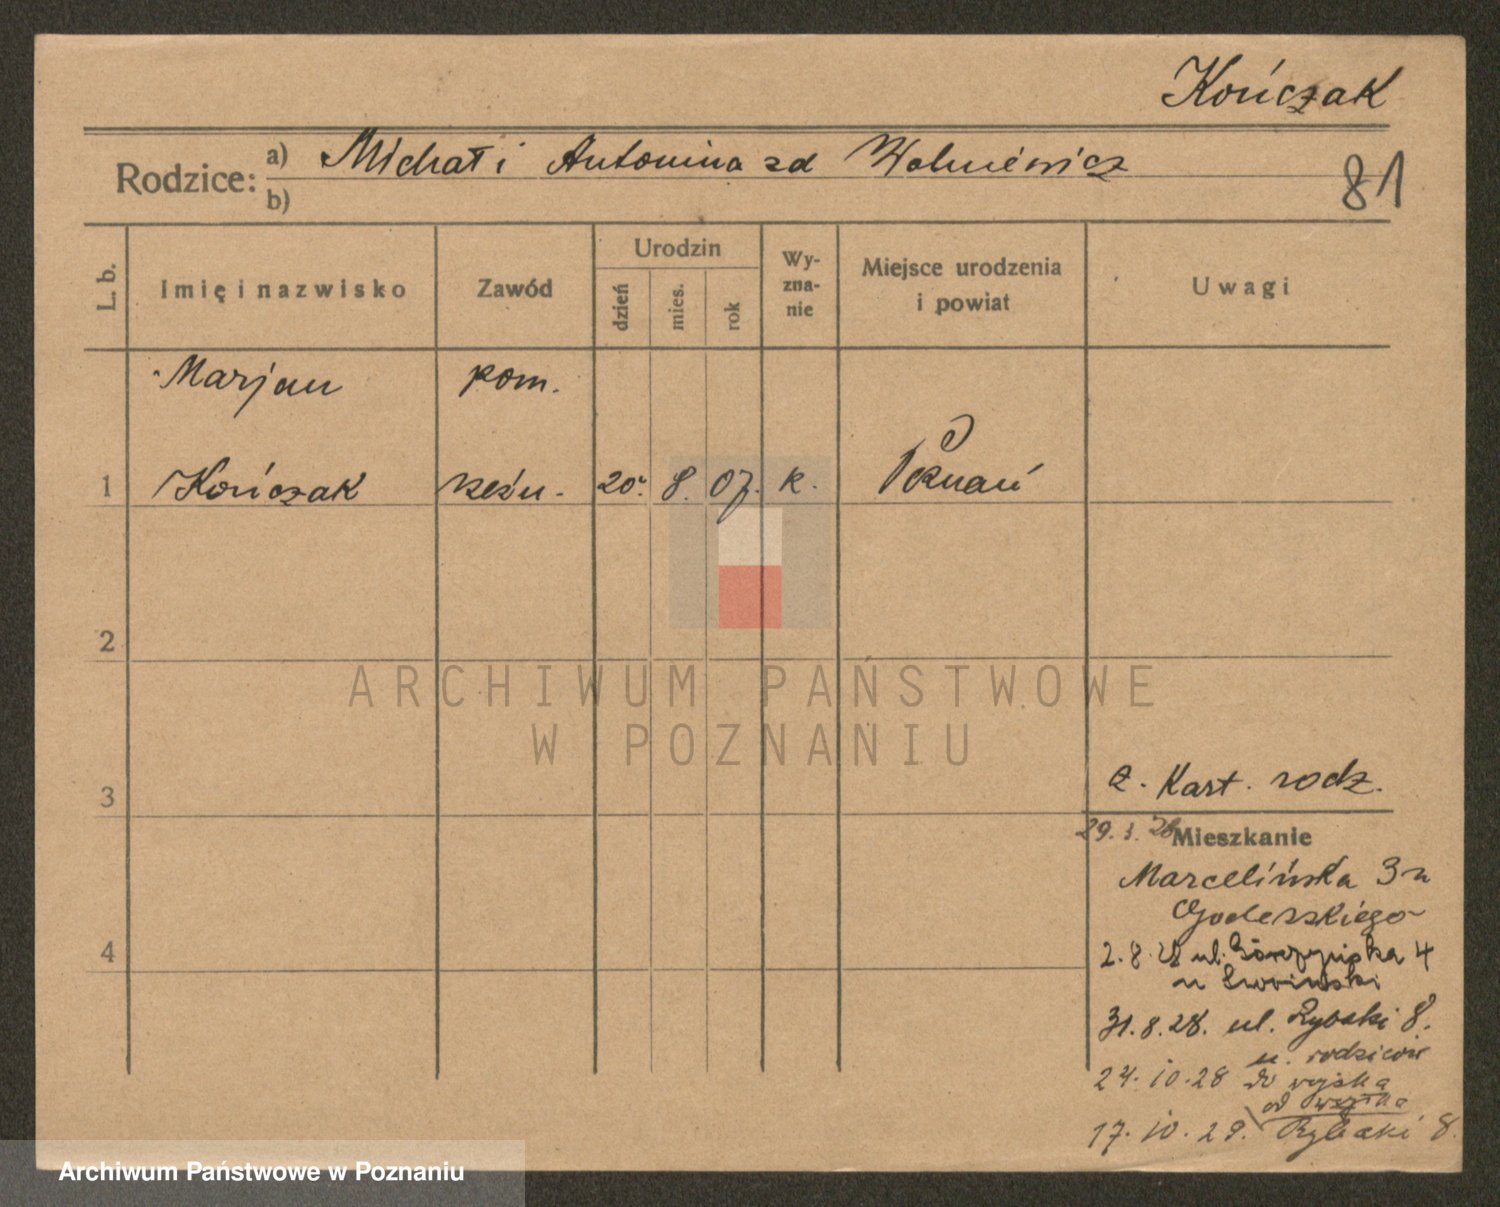 Kończak
Rodzice: a) Michał i Antonina zd Wolniewicz
b)
81
L. b. Imię i nazwisko Zawód Urodzin dzień mies. rok Wyznanie Miejsce urodzenia i powiat Uwagi
Marjan pom.
1 Kończak rzeźn. 20. 8. 07. k. Poznań
2
ARCHIWUM PAŃSTWOWE
W POZNANIU
z. Kart. rodz.
3
29. 3. 28 Mieszkanie
Marcelińska 3 u
4
2. 8. 28 ul. 4
u
31. 8. 28. ul. Rybaki 8.
u. rodziców
24. 10. 28 do wojska
od wojska
17. 10. 29. Rybaki 8.
Archiwum Państwowe w Poznaniu